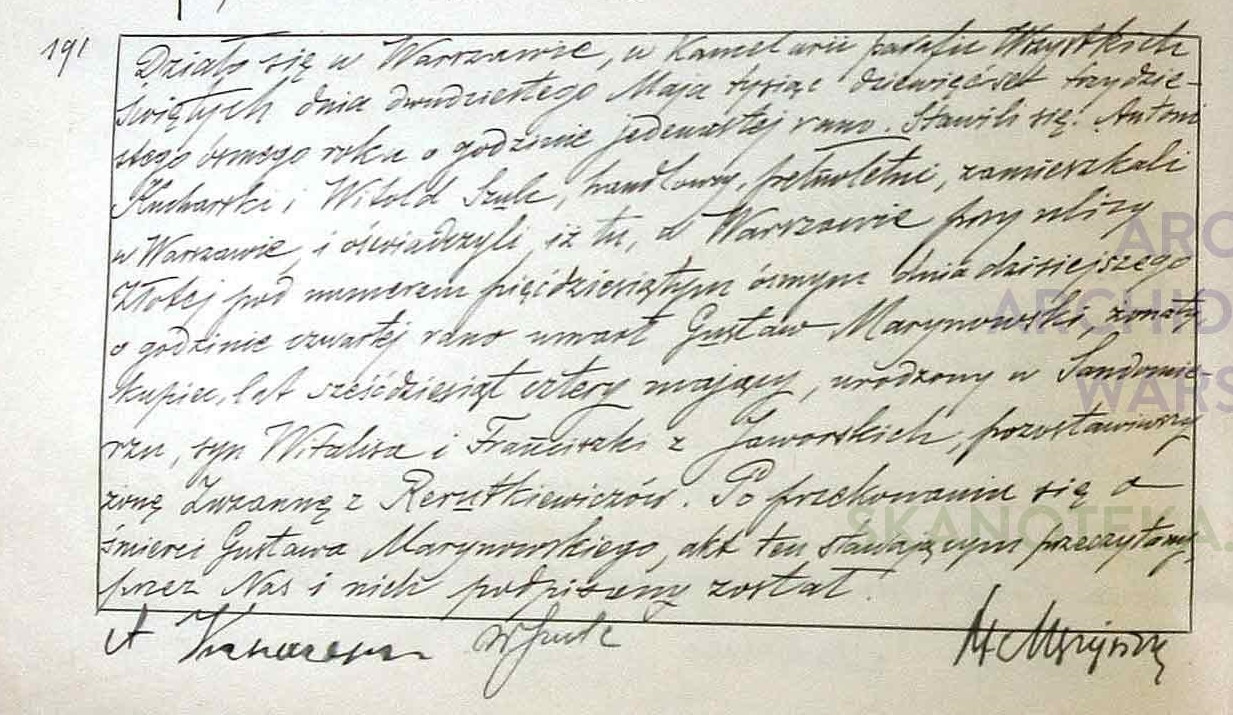 191
Działo się w Warszawie, w Kancelarii parafii Wszystkich
Świętych dnia dwudziestego Maja tysiąc dziewięćset trzydzie-
stego ósmego roku o godzinie jedenastej rano. Stawili się: Antoni
Kucharski i Witold Szulc, handlowcy, pełnoletni, zamieszkali
w Warszawie, i oświadczyli, iż tu, w Warszawie przy ulicy
Złotej pod numerem pięćdziesiątym ósmym dnia dzisiejszego
o godzinie czwartej rano umarł Gustaw Marynowski, żonaty,
kupiec, lat sześćdziesiąt cztery mający, urodzony w Sandomie-
rzu, syn Witalisa i Franciszki z Jaworskich, pozostawiwszy
żonę Zuzannę z Rerutkiewiczów. Po przekonaniu się o
śmierci Gustawa Marynowskiego, akt ten stawającym przeczytany,
przez Nas i nich podpisany został.
A W Szulc
ARC
ARCHID
WARS
SKANOTEKA.